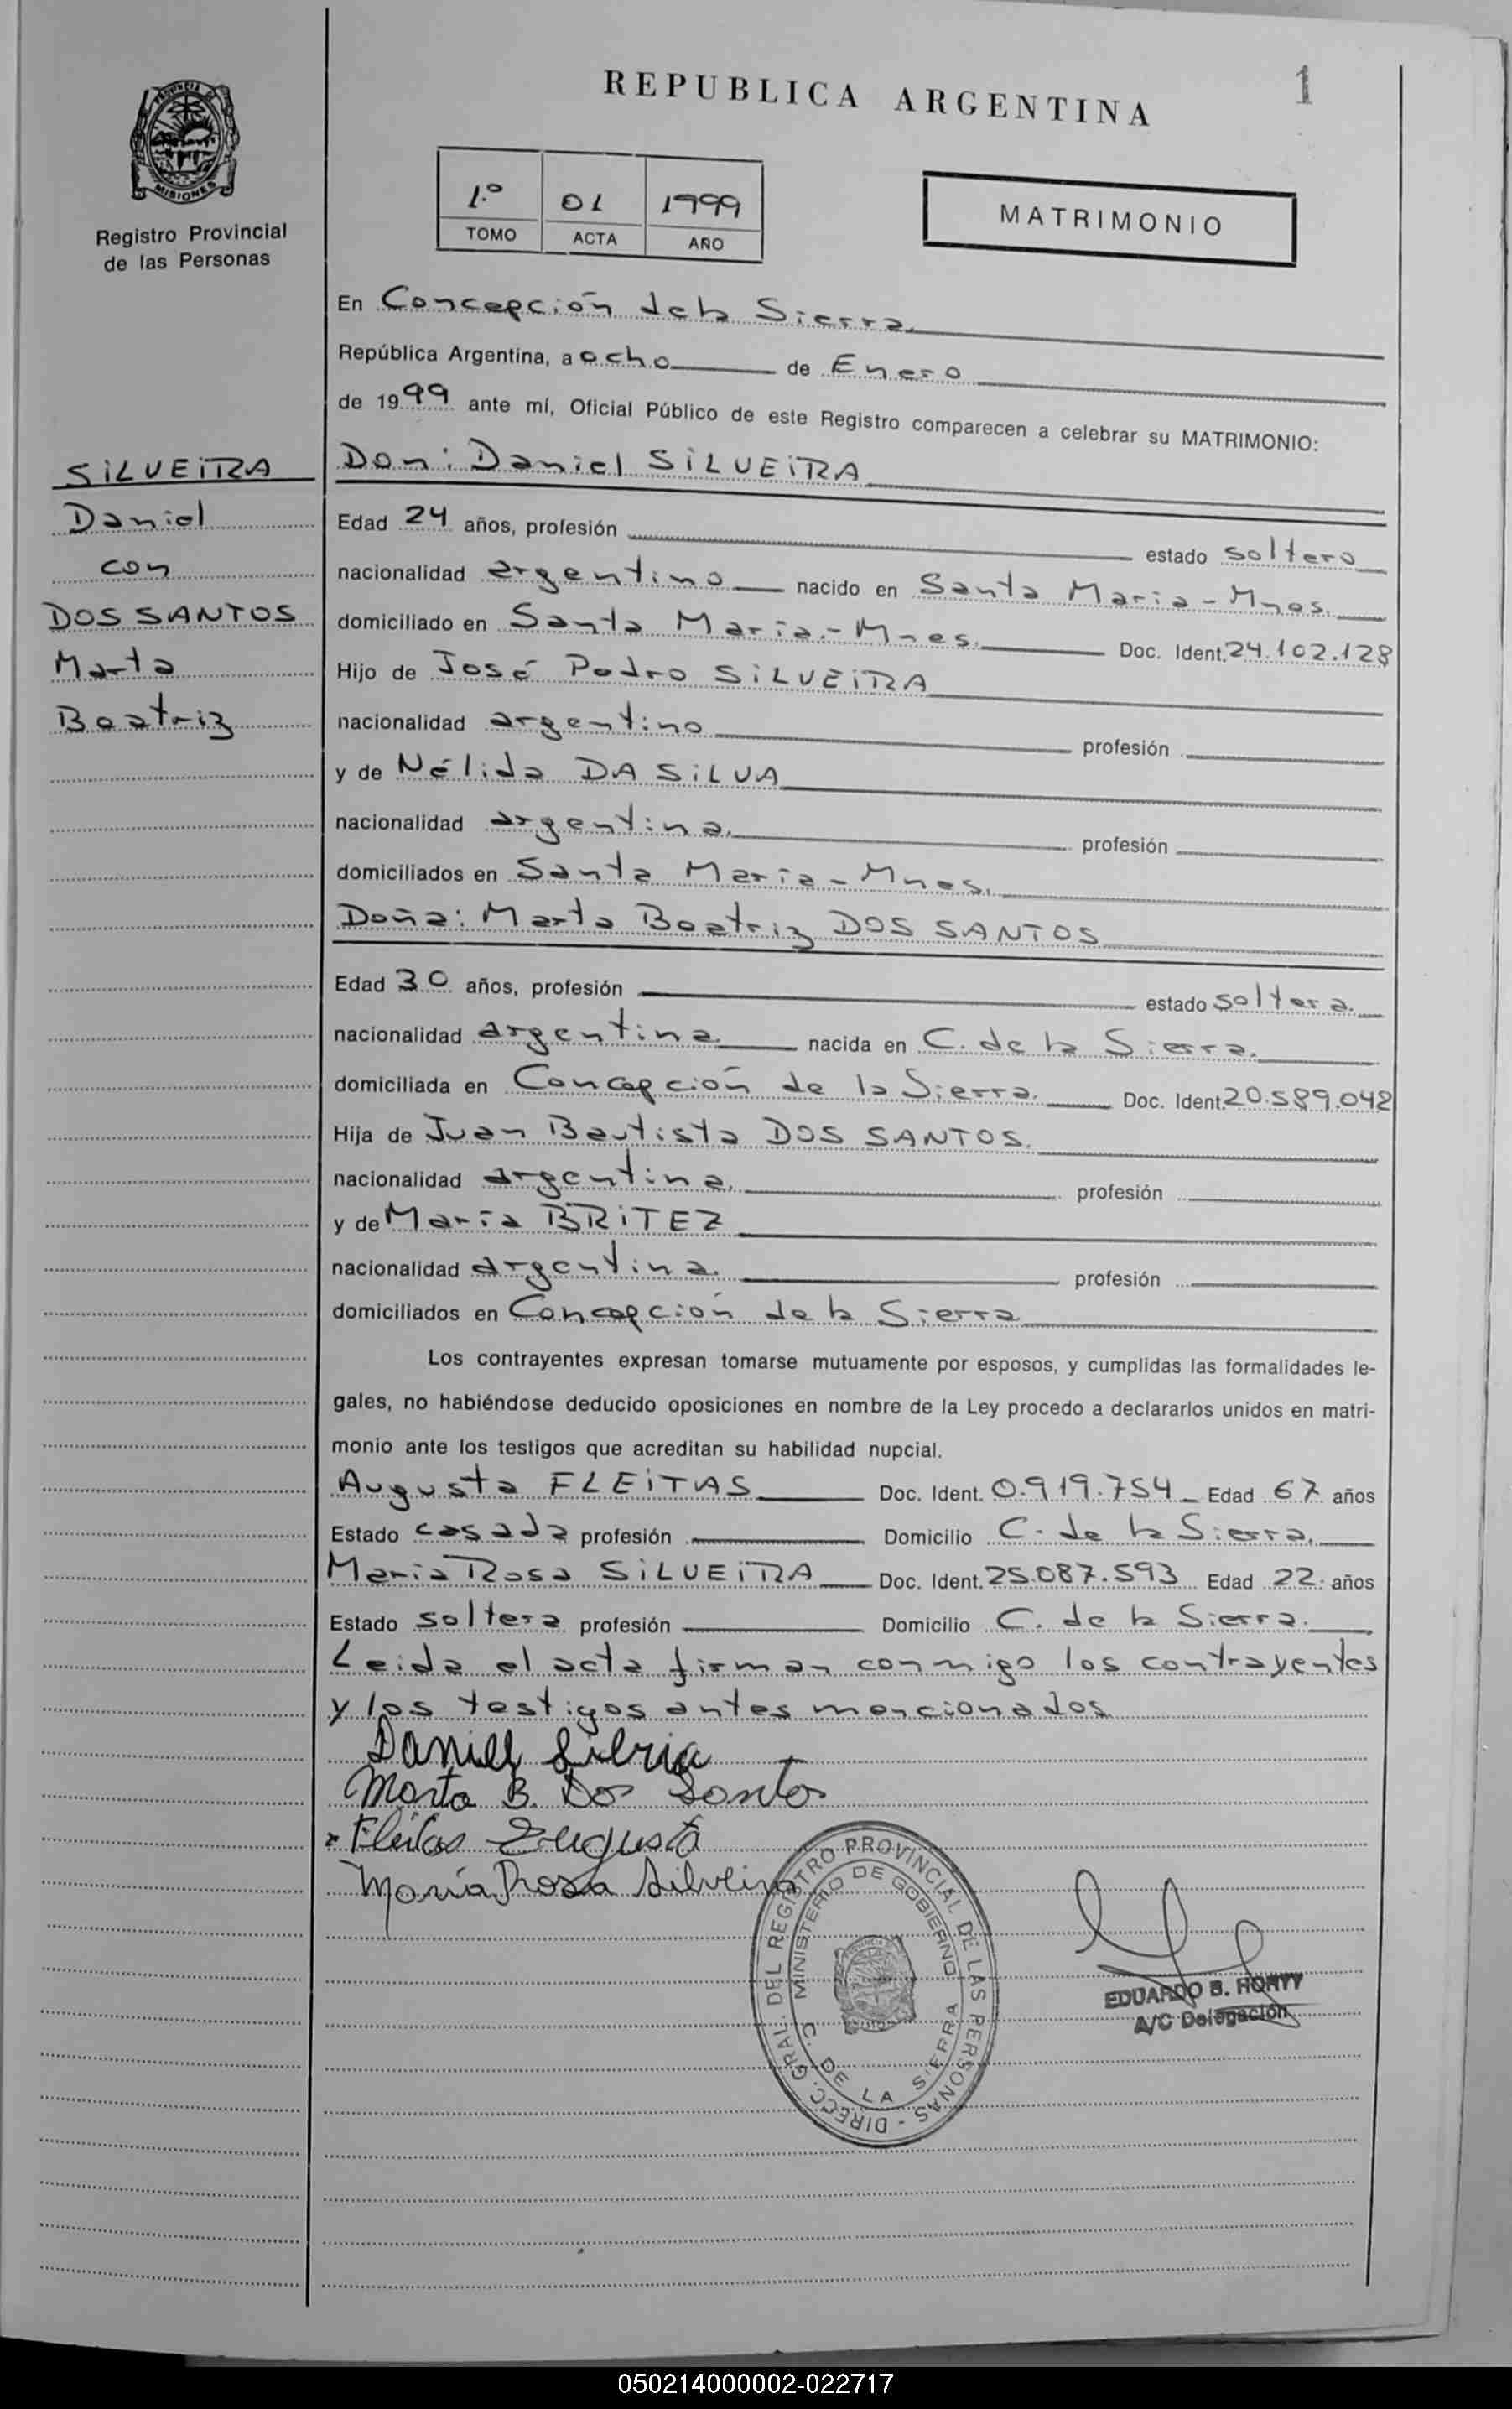 REPUBLICA ARGENTINA
1
PROVINCIA DE
MISIONES
Registro Provincial
de las Personas
1.º 01 1999
TOMO ACTA AÑO
MATRIMONIO
En Concepción de la Sierra.
República Argentina, a ocho de Enero
de 1999 ante mí, Oficial Público de este Registro comparecen a celebrar su MATRIMONIO:
SILVEIRA
Daniel
con
DOS SANTOS
Marta
Beatriz
Don: Daniel SILVEIRA
Edad 24 años, profesión estado soltero
nacionalidad argentino nacido en Santa María-Mnes.
domiciliado en Santa María.-Mnes. Doc. Ident. 24.102.128
Hijo de José Pedro SILVEIRA
nacionalidad argentino profesión
y de Nélida DA SILVA
nacionalidad argentina. profesión
domiciliados en Santa María-Mnes.
Doña: Marta Beatriz DOS SANTOS
Edad 30 años, profesión estado soltera.
nacionalidad argentina nacida en C. de la Sierra.
domiciliada en Concepción de la Sierra. Doc. Ident. 20.589.042
Hija de Juan Bautista DOS SANTOS.
nacionalidad argentina. profesión
y de María BRITEZ
nacionalidad argentina. profesión
domiciliados en Concepción de la Sierra
Los contrayentes expresan tomarse mutuamente por esposos, y cumplidas las formalidades le-
gales, no habiéndose deducido oposiciones en nombre de la Ley procedo a declararlos unidos en matri-
monio ante los testigos que acreditan su habilidad nupcial.
Augusta FLEITAS Doc. Ident. 0.919.754 Edad 67 años
Estado casada profesión Domicilio C. de la Sierra.
María Rosa SILVEIRA Doc. Ident. 25.087.593 Edad 22 años
Estado soltera profesión Domicilio C. de la Sierra.
Leida el acta firman conmigo los contrayentes
y los testigos antes mencionados
Daniel Silvria
Marta B. Dos Santos
Fleitas Augusta
María Rosa Silveira
DIRECC. GRAL. DEL REGISTRO PROVINCIAL DE LAS PERSONAS -
MINISTERIO DE GOBIERNO
C. DE LA SIERRA
EDUARDO B. HORYY
A/C Delegación
050214000002-022717